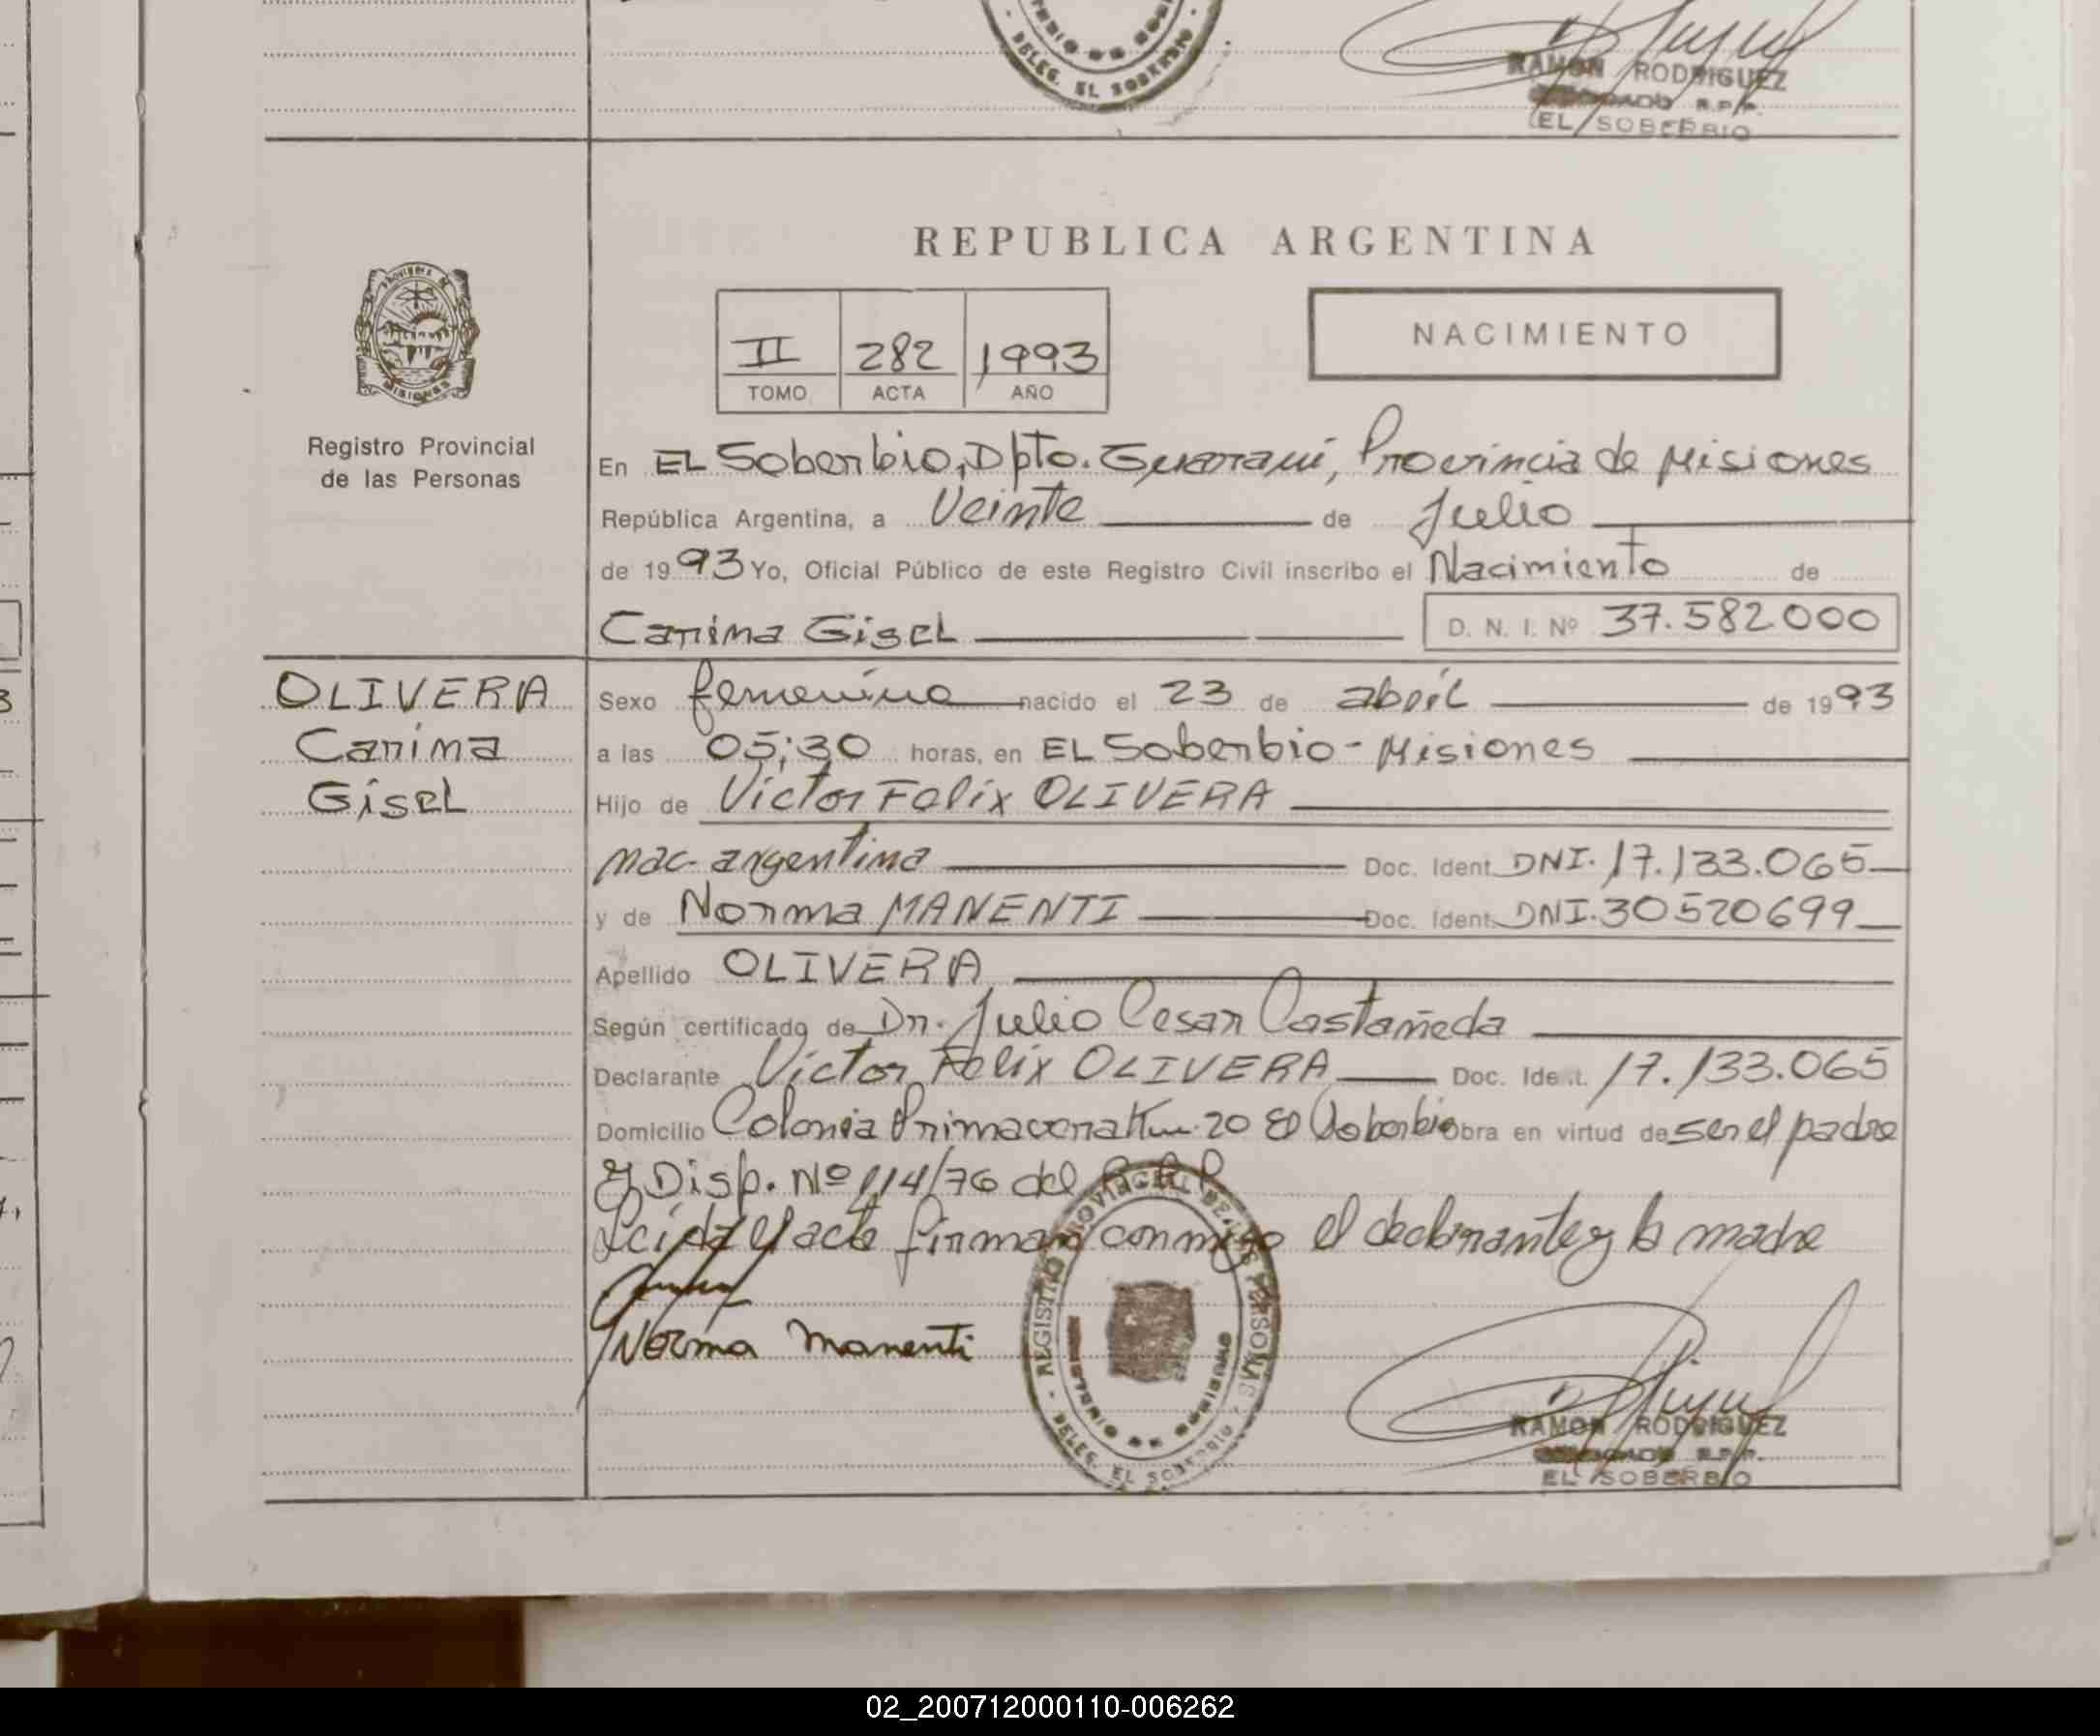 DELEG. EL SOBERBIO
RAMON RODRIGUEZ
R.P.P.
EL SOBERBIO
REPUBLICA ARGENTINA
PROVINCIA DE MISIONES
II 282 1993
TOMO ACTA AÑO
NACIMIENTO
Registro Provincial
de las Personas
En EL Soberbio, Dpto. Guaraní, Provincia de Misiones
República Argentina, a Veinte de Julio
de 1993 Yo, Oficial Público de este Registro Civil inscribo el Nacimiento de
Carina Gisel D. N. I. Nº 37.582.000
OLIVERA
Carina
Gisel
Sexo femenino nacido el 23 de abril de 1993
a las 05:30 horas, en EL Soberbio - Misiones
Hijo de Victor Felix OLIVERA
nac. argentina Doc. Ident. DNI. 17.133.065
y de Norma MANENTI Doc. Ident. DNI. 30520699
Apellido OLIVERA
Según certificado de Dr. Julio Cesar Castañeda
Declarante Victor Felix OLIVERA Doc. Ident. 17.133.065
Domicilio Colonia Primavera Km. 20 El Soberbio Obra en virtud de ser el padre
y Disp. Nº 114/76 del R.P.P.
Leida el acta firman conmigo el declarante y la madre
Norma Manenti
REGISTRO PROVINCIAL DE LAS PERSONAS
MINISTERIO DE GOBIERNO
DELEG. EL SOBERBIO
RAMON RODRIGUEZ
R.P.P.
EL SOBERBIO
02_200712000110-006262